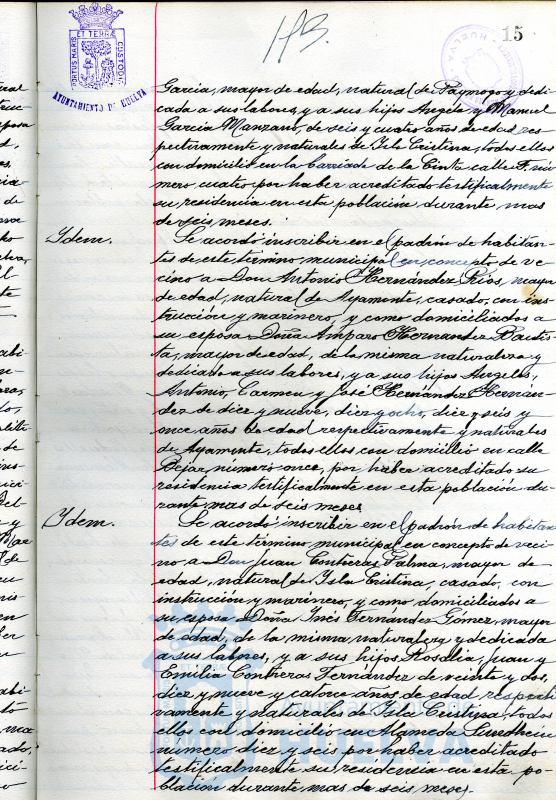 PORTUS MARIS ET TERRÆ CUSTODIA
AYUNTAMIENTO DE HUELVA
113.
15
García, mayor de edad, natural de Paymogo y dedi-
cada a sus labores, y a sus hijos Angela y Manuel
García Manzano, de seis y cuatro años de edad res-
pectivamente y naturales de Isla Cristina, todos ellos
con domicilio en la Barriada de la Cinta calle F. nú-
mero cuatro por haber acreditado testificalmente
su residencia en esta población durante mas
de seis meses.
Ydem.
Se acordó inscribir en el padrón de habitan-
tes de este término municipal en concepto de ve-
cino a Don Antonio Hernández Rios, mayor
de edad, natural de Ayamonte, casado, con ins-
trucción y marinero, y como domiciliados a
su esposa Doña Amparo Hernandez Bautis-
ta, mayor de edad, de la misma naturaleza y
dedicada a sus labores, y a sus hijos Angeles,
Antonio, Carmen y José Hernández Hernan-
dez de diez y nueve, diez y ocho, diez y seis y
once años de edad respectivamente y naturales
de Ayamonte, todos ellos con domicilio en calle
Bejar, numero once, por haber acreditado su
residencia testificalmente en esta población du-
rante mas de seis meses
Ydem.
Se acordó inscribir en el padrón de habitan-
tes de este término municipal en concepto de veci-
no a Don Juan Contreras Palma, mayor de
edad, natural de Isla Cristina, casado, con
instrucción y marinero, y como domiciliados a
su esposa Doña Inés Fernandez Gómez, mayor
de edad, de la misma naturaleza y dedicada
a sus labores, y a sus hijos Rosalia, Juan y
Emilia Contreras Fernández de veinte y dos,
diez y nueve y catorce años de edad respecti-
vamente y naturales de Isla Cristina, todos
ellos con domicilio en Alameda Sundheim
número diez y seis por haber acreditado
testificalmente su residencia en esta po-
blación durante mas de seis meses.